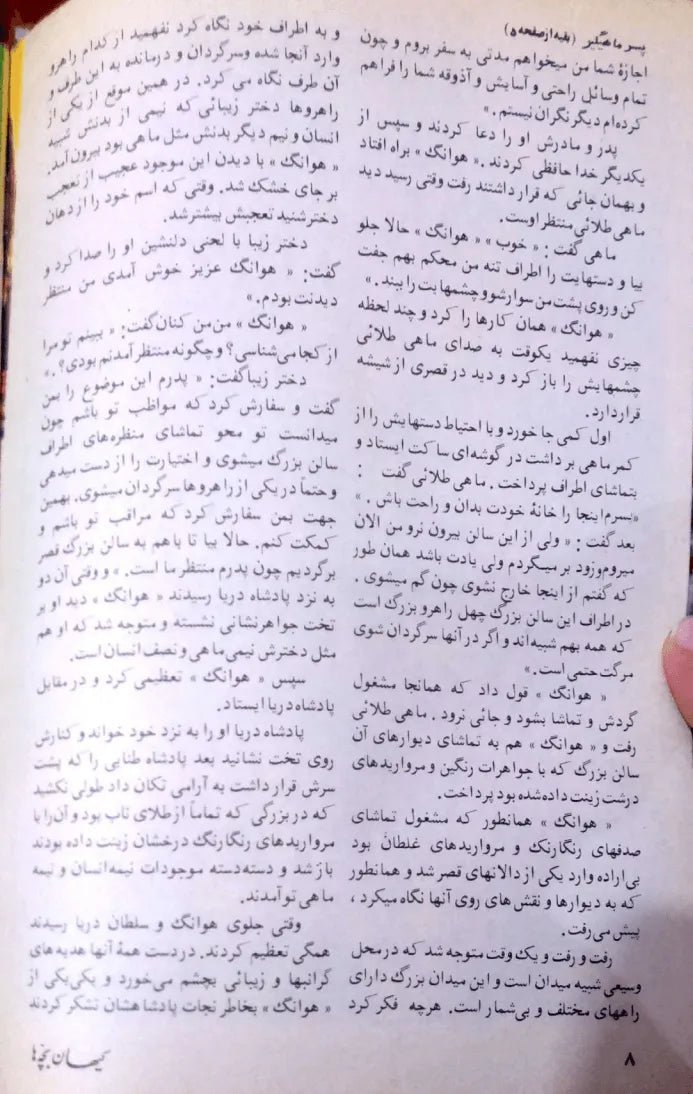 پسر ماهیگیر (بقیه از صفحه ۵)
اجازهٔ شما من میخواهم مدتی به سفر بروم و چون
تمام وسائل راحتی و آسایش و آذوقه شما را فراهم
کرده‌ام دیگر نگران نیستم .»
پدر و مادرش او را دعا کردند و سپس از
یکدیگر خدا حافظی کردند .« هوانگ » براه افتاد
و بهمان جائی که قرار داشتند رفت وقتی رسید دید
ماهی طلائی منتظر اوست.
ماهی گفت : « خوب » « هوانگ » حالا جلو
بیا و دستهایت را اطراف تنه من محکم بهم جفت
کن و روی پشت من سوار شو و چشمهایت را ببند .»
« هوانگ » همان کارها را کرد و چند لحظه
چیزی نفهمید یکوقت به صدای ماهی طلائی
چشمهایش را باز کرد و دید در قصری از شیشه
قرار دارد.
اول کمی جا خورد و با احتیاط دستهایش را از
کمر ماهی برداشت در گوشه‌ای ساکت ایستاد و
بتماشای اطراف پرداخت . ماهی طلائی گفت :
«پسرم اینجا را خانهٔ خودت بدان و راحت باش .»
بعد گفت : « ولی از این سالن بیرون نرو من الان
میروم وزود بر میگردم ولی یادت باشد همان طور
که گفتم از اینجا خارج نشوی چون گم میشوی .
در اطراف این سالن بزرگ چهل راهرو بزرگ است
که همه بهم شبیه‌اند و اگر در آنها سرگردان شوی
مرگت حتمی است.»
« هوانگ » قول داد که همانجا مشغول
گردش و تماشا بشود و جائی نرود . ماهی طلائی
رفت و « هوانگ » هم به تماشای دیوارهای آن
سالن بزرگ که با جواهرات رنگین و مرواریدهای
درشت زینت داده‌شده بود پرداخت.
« هوانگ » همانطور که مشغول تماشای
صدفهای رنگارنگ و مرواریدهای غلطان بود
بی‌اراده وارد یکی از دالانهای قصر شد و همانطور
که به دیوارها و نقش های روی آنها نگاه میکرد ،
پیش می‌رفت.
رفت و رفت و یک وقت متوجه شد که در محل
وسیعی شبیه میدان است و این میدان بزرگ دارای
راههای مختلف و بی‌شمار است. هرچه فکر کرد
و به اطراف خود نگاه کرد نفهمید از کدام راهرو
وارد آنجا شده وسرگردان و درمانده به این طرف و
آن طرف نگاه می کرد. در همین موقع از یکی از
راهروها دختر زیبائی که نیمی از بدنش شبیه
انسان و نیم دیگر بدنش مثل ماهی بود بیرون آمد.
« هوانگ » با دیدن این موجود عجیب از تعجب
بر جای خشک شد. وقتی که اسم خود را از دهان
دختر شنید تعجبش بیشتر شد.
دختر زیبا با لحنی دلنشین او را صدا کرد و
گفت: « هوانگ عزیز خوش آمدی من منتظر
دیدنت بودم.»
« هوانگ » من‌من کنان گفت: « ببینم تو مرا
از کجا می‌شناسی؟ و چگونه منتظر آمدنم بودی؟.»
دختر زیبا گفت: « پدرم این موضوع را بمن
گفت و سفارش کرد که مواظب تو باشم چون
میدانست تو محو تماشای منظره‌های اطراف
سالن بزرگ میشوی و اختیارت را از دست میدهی
و حتماً در یکی از راهروها سرگردان میشوی. بهمین
جهت بمن سفارش کرد که مراقب تو باشم و
کمکت کنم. حالا بیا تا باهم به سالن بزرگ قصر
برگردیم چون پدرم منتظر ما است. » و وقتی آن دو
به نزد پادشاه دریا رسیدند « هوانگ » دید او بر
تخت جواهرنشانی نشسته و متوجه شد که او هم
مثل دخترش نیمی ماهی و نصف انسان است.
سپس « هوانگ » تعظیمی کرد و در مقابل
پادشاه دریا ایستاد.
پادشاه دریا او را به نزد خود خواند و کنارش
روی تخت نشانید بعد پادشاه طنابی را که پشت
سرش قرار داشت به آرامی تکان داد طولی نکشید
که در بزرگی که تماماً از طلای ناب بود و آن را با
مرواریدهای رنگارنگ درخشان زینت داده بودند
باز شد و دسته‌دسته موجودات نیمه‌انسان و نیمه
ماهی تو آمدند.
وقتی جلوی هوانگ و سلطان دریا رسیدند
همگی تعظیم کردند. در دست همهٔ آنها هدیه های
گرانبها و زیبائی بچشم می‌خورد و یکی‌یکی از
« هوانگ » بخاطر نجات پادشاهشان تشکر کردند
۸
کیهان بچه‌ها